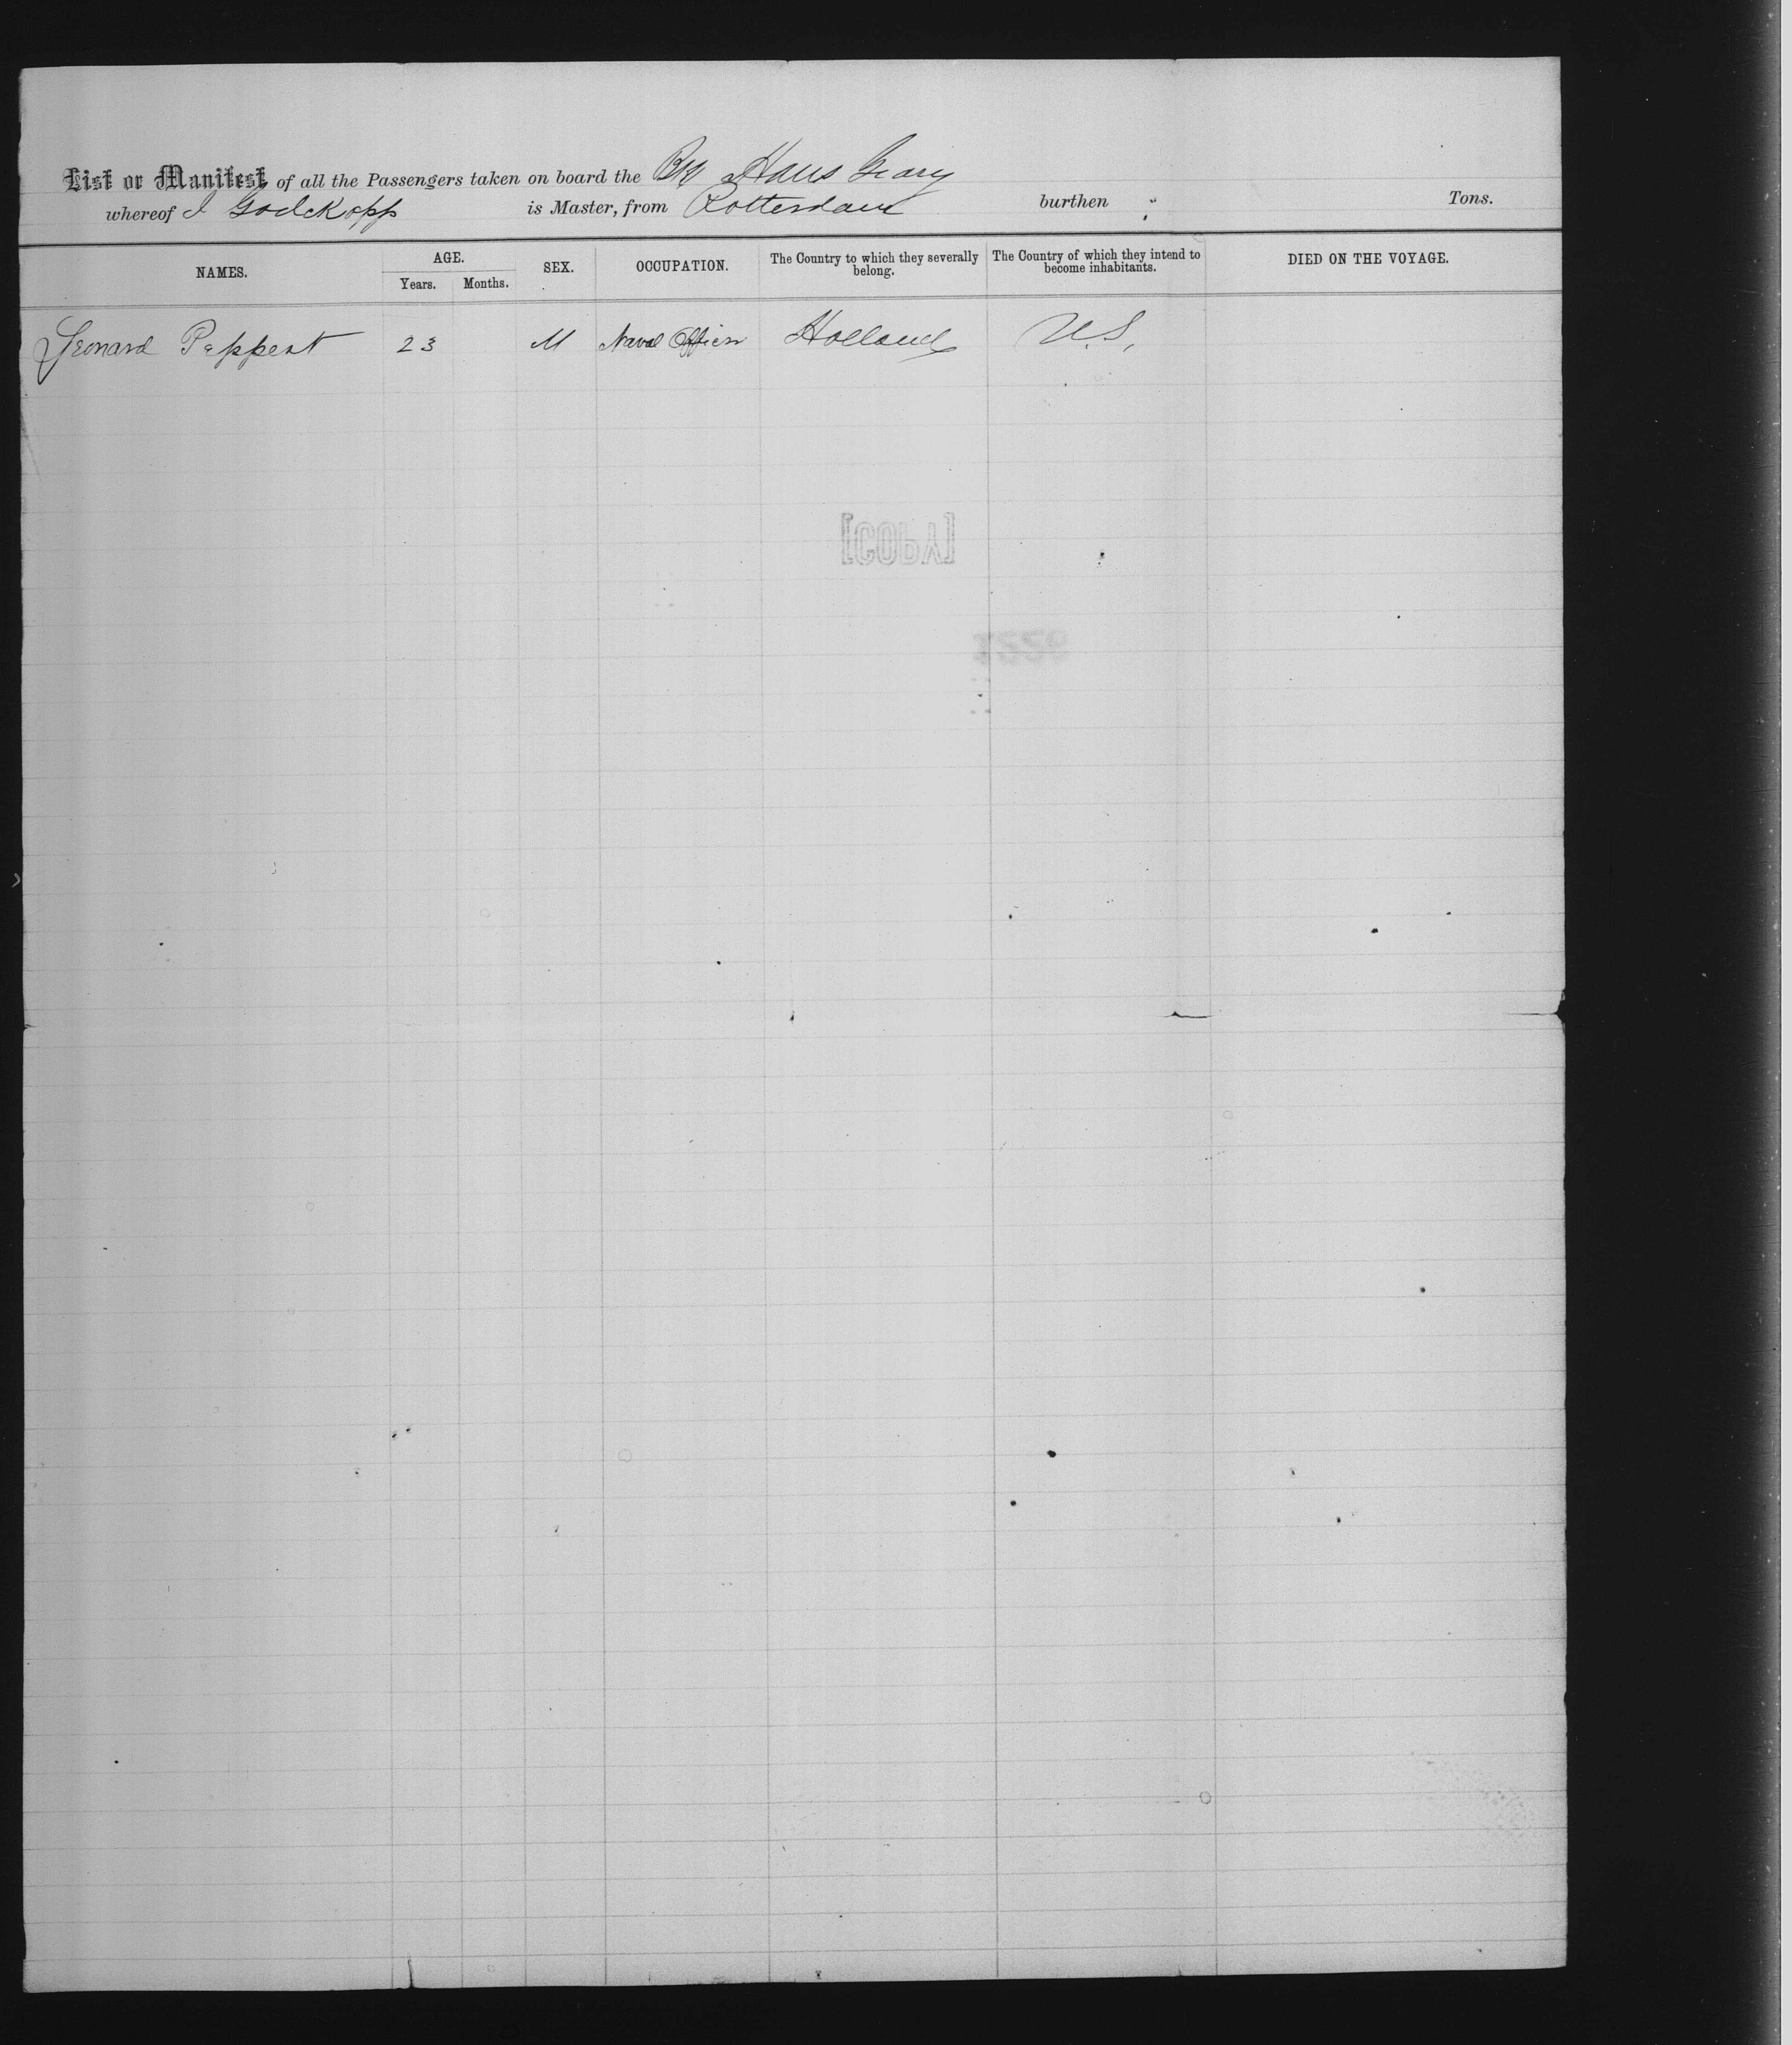 List or Manifest of all the Passengers taken on board the Bk Hans Geary
whereof I Godckopp is Master, from Rotterdam burthen Tons.
NAMES. AGE. SEX. OCCUPATION. The Country to which they severally belong. The Country of which they intend to become inhabitants. DIED ON THE VOYAGE.
Years. Months.
Leonard Pappert 23 M Naval Officer Holland U.S.
[COPY]